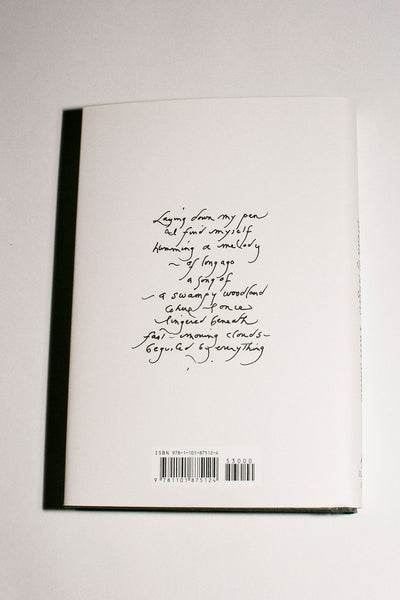 Laying down my pen
I find myself
humming a melody
~ of long ago
a song of
~ a swampy woodland
where I once
lingered beneath
fast-moving clouds-
beguiled by everything
ISBN 978-1-101-87512-4
53000
9 781101 875124